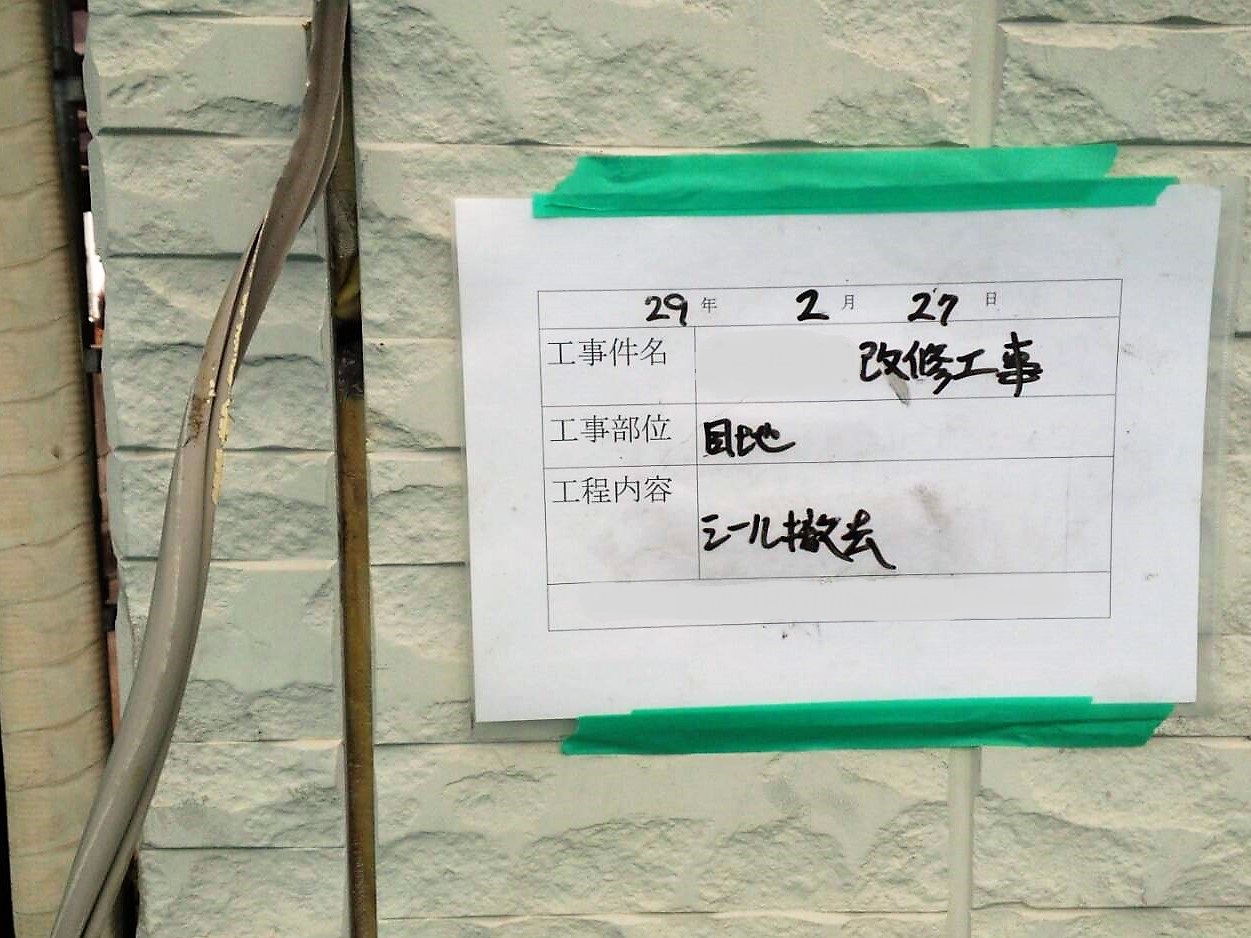 29年 2月 27日
工事件名 改修工事
工事部位 目地
工程内容 シール撤去